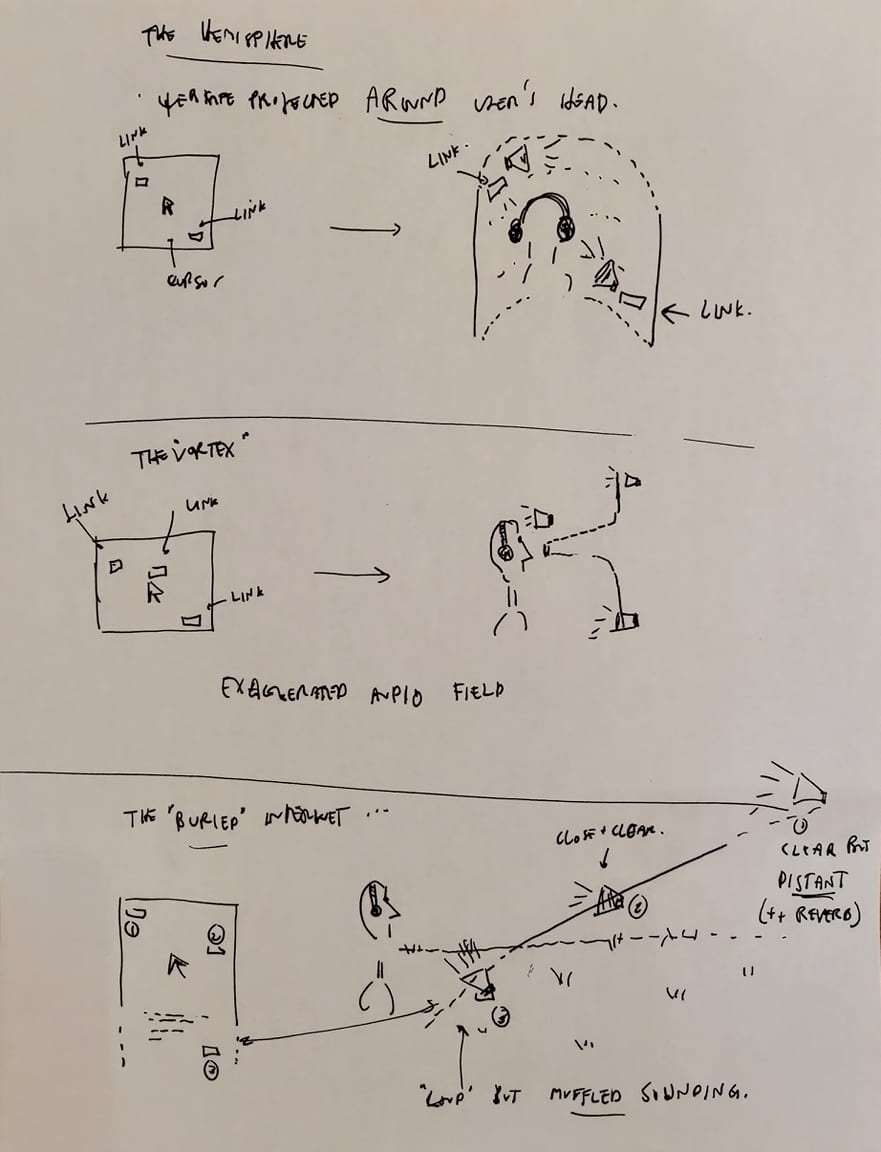 THE HEMISPHERE
PROJECTED AROUND USER'S HEAD.
LINK
LINK
CURSOR
LINK.
LINK.
THE "VORTEX"
LINK
LINK
LINK
EXAGGERATED AUDIO FIELD
THE "BURIED" INTERNET ...
CLOSE + CLEAR.
①
CLEAR BUT
DISTANT
(++ REVERB)
②
①
②
③
③
"LOUD" BUT MUFFLED SOUNDING.